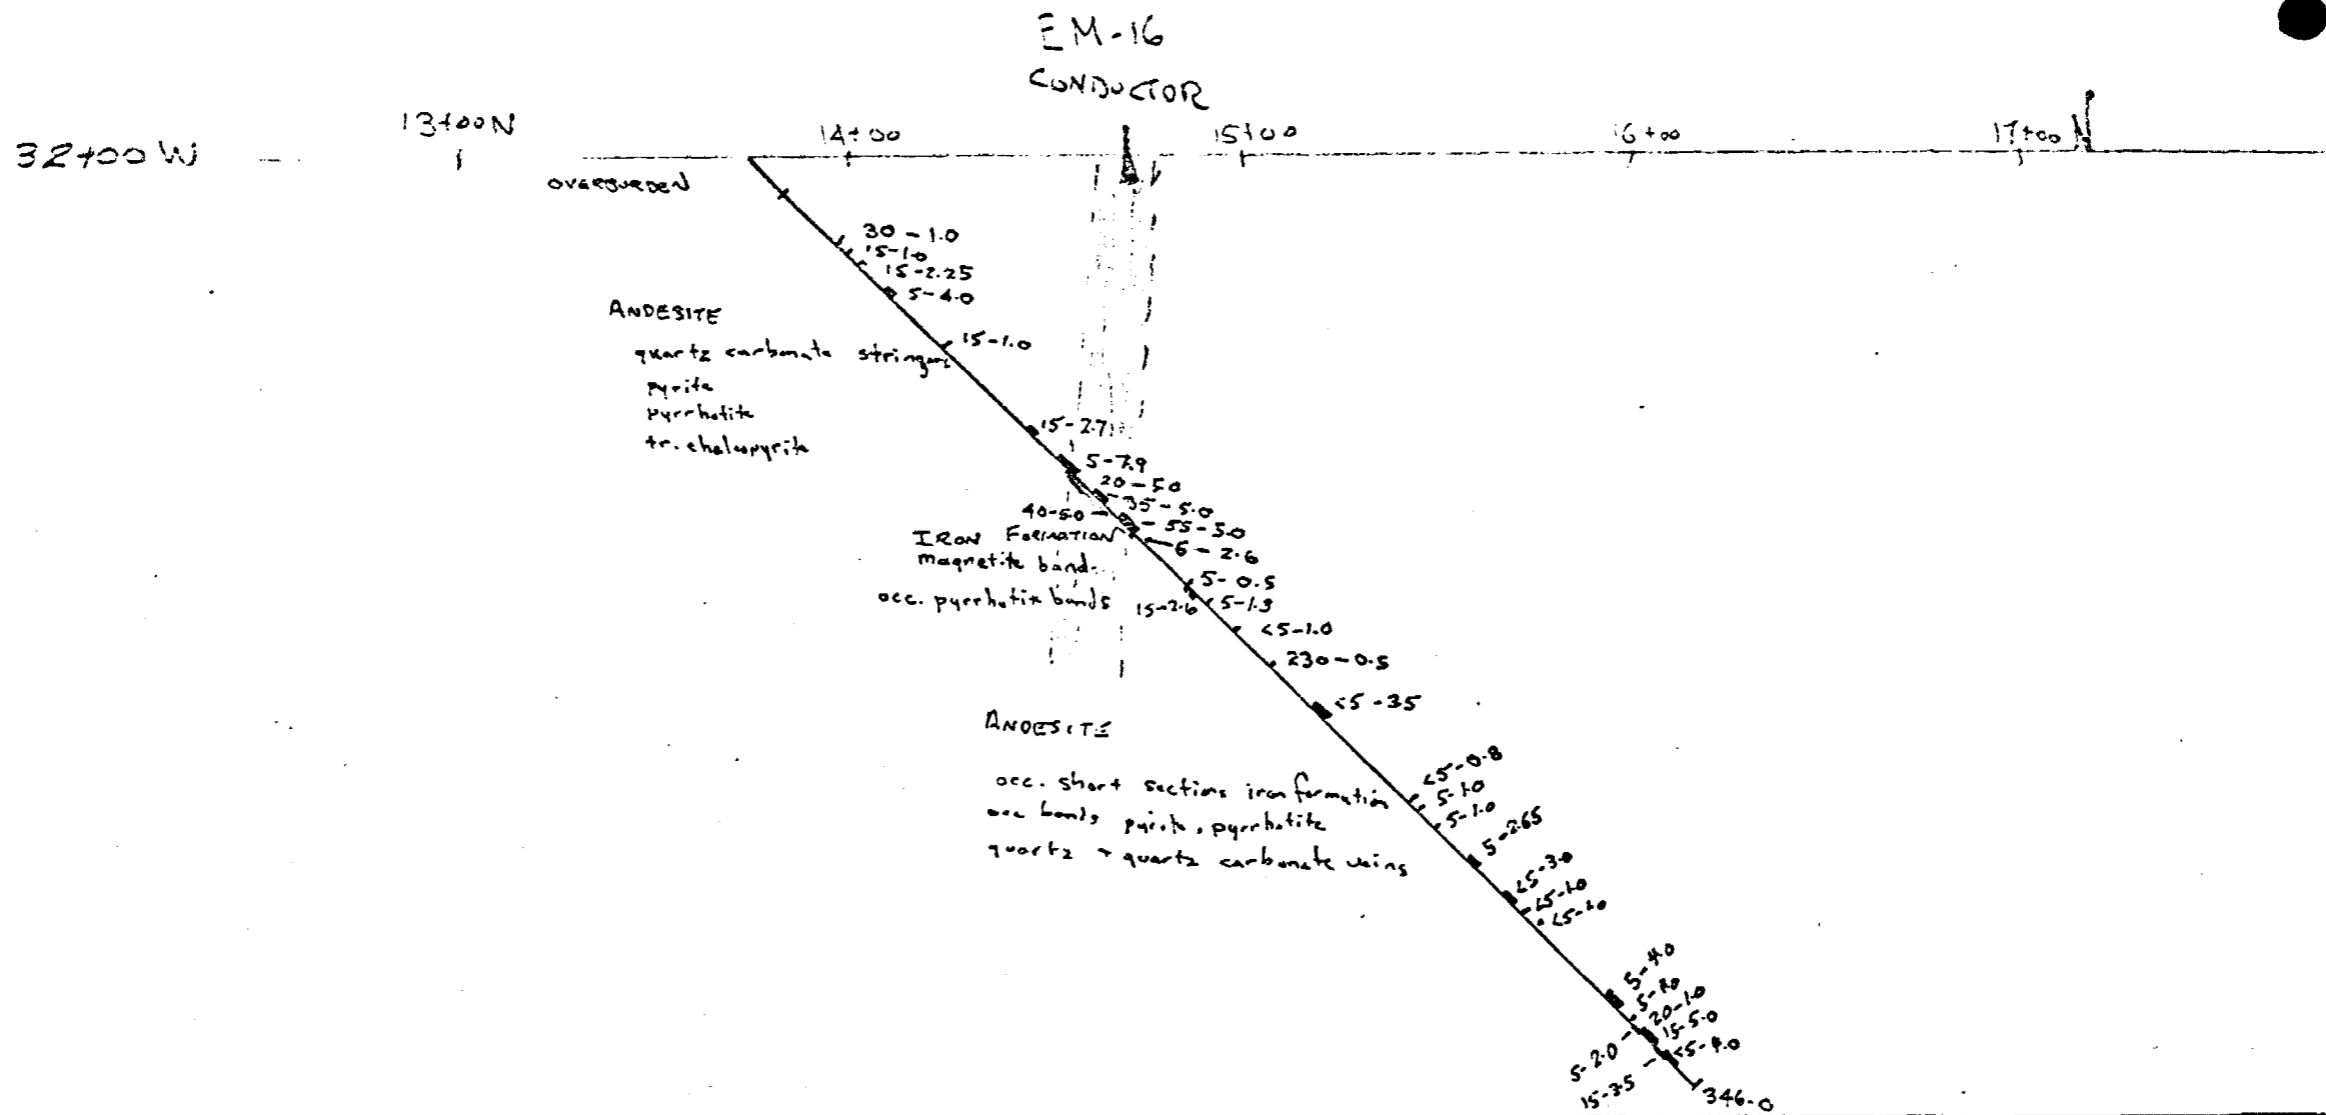 EM-16
CONDUCTOR
32+00 W
13+00N
14+00
15+00
16+00
17+00 N
OVERBURDEN
30-1.0
15-1.0
15-2.25
5-4.0
ANDESITE
15-1.0
quartz carbonate stringers
pyrite
pyrrhotite
tr. chalcopyrite
15-2.71
5-7.9
20-5.0
35-5.0
40-5.0
55-5.0
IRON FORMATION
6-2.6
magnetite band
5-0.5
occ. pyrrhotite bands
15-2.6
5-1.3
<5-1.0
230-0.5
<5-3.5
ANDESITE
<5-0.8
occ. short sections iron formation
5-1.0
occ bands pyrite, pyrrhotite
5-1.0
quartz + quartz carbonate veins
5-2.65
<5-3.0
<5-1.0
<5-1.0
5-4.0
20-1.0
15-5.0
5-2.0
<5-4.0
15-3.5
346.0